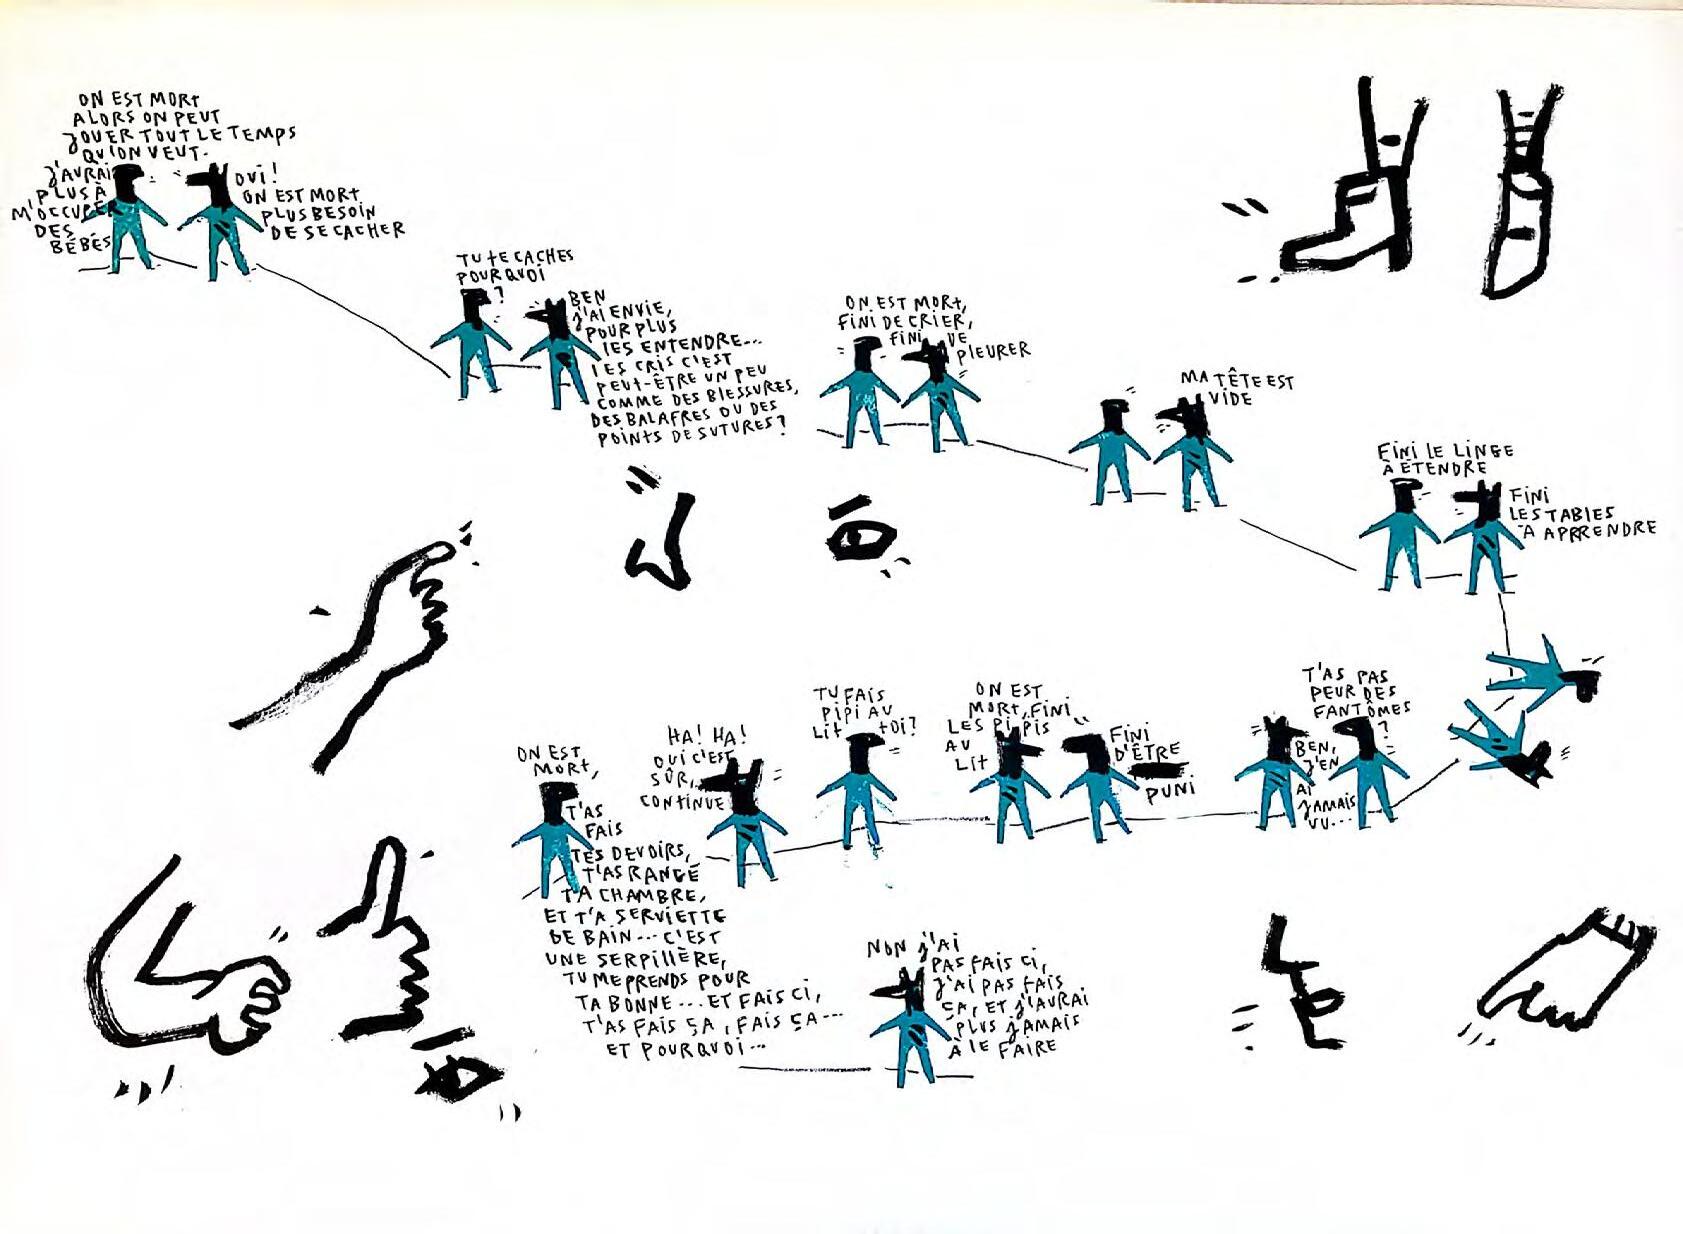 ON EST MORT
ALORS ON PEUT
JOUER TOUT LE TEMPS
QU'ON VEUT.
J'AVRAI
PLUS À
M'OCCUPER
DES
BÉBÉS
OVI!
ON EST MORT
PLUS BESOIN
DE SE CACHER
TU TE CACHES
POURQUOI
?
BEN
J'AI ENVIE,
POUR PLUS
LES ENTENDRE...
LES CRIS C'EST
PEUT-ÊTRE UN PEU
COMME DES BLESSURES,
DES BALAFRES OU DES
POINTS DE SUTURES?
ON EST MORT,
FINI DE CRIER,
FINI DE
PLEURER
MA TÊTE EST
VIDE
FINI LE LINGE
À ÉTENDRE
FINI
LES TABLES
À APRRENDRE
T'AS PAS
PEUR DES
FANTÔMES
?
BEN,
J'EN
AI
JAMAIS
VU...
ON EST
MORT, FINI
LES PIPIS
AU
LIT
FINI
D'ÊTRE
PUNI
TU FAIS
PIPI AU
LIT TOI?
HA! HA!
OUI C'EST
SÛR,
CONTINUE
ON EST
MORT,
T'AS
FAIS
TES DEVOIRS,
T'AS RANGÉ
TA CHAMBRE,
ET T'A SERVIETTE
DE BAIN... C'EST
UNE SERPILLÈRE,
TU ME PRENDS POUR
TA BONNE... ET FAIS CI,
T'AS FAIS ÇA, FAIS ÇA...
ET POURQUOI...
NON J'AI
PAS FAIS CI,
J'AI PAS FAIS
ÇA, ET J'AURAI
PLUS JAMAIS
À LE FAIRE